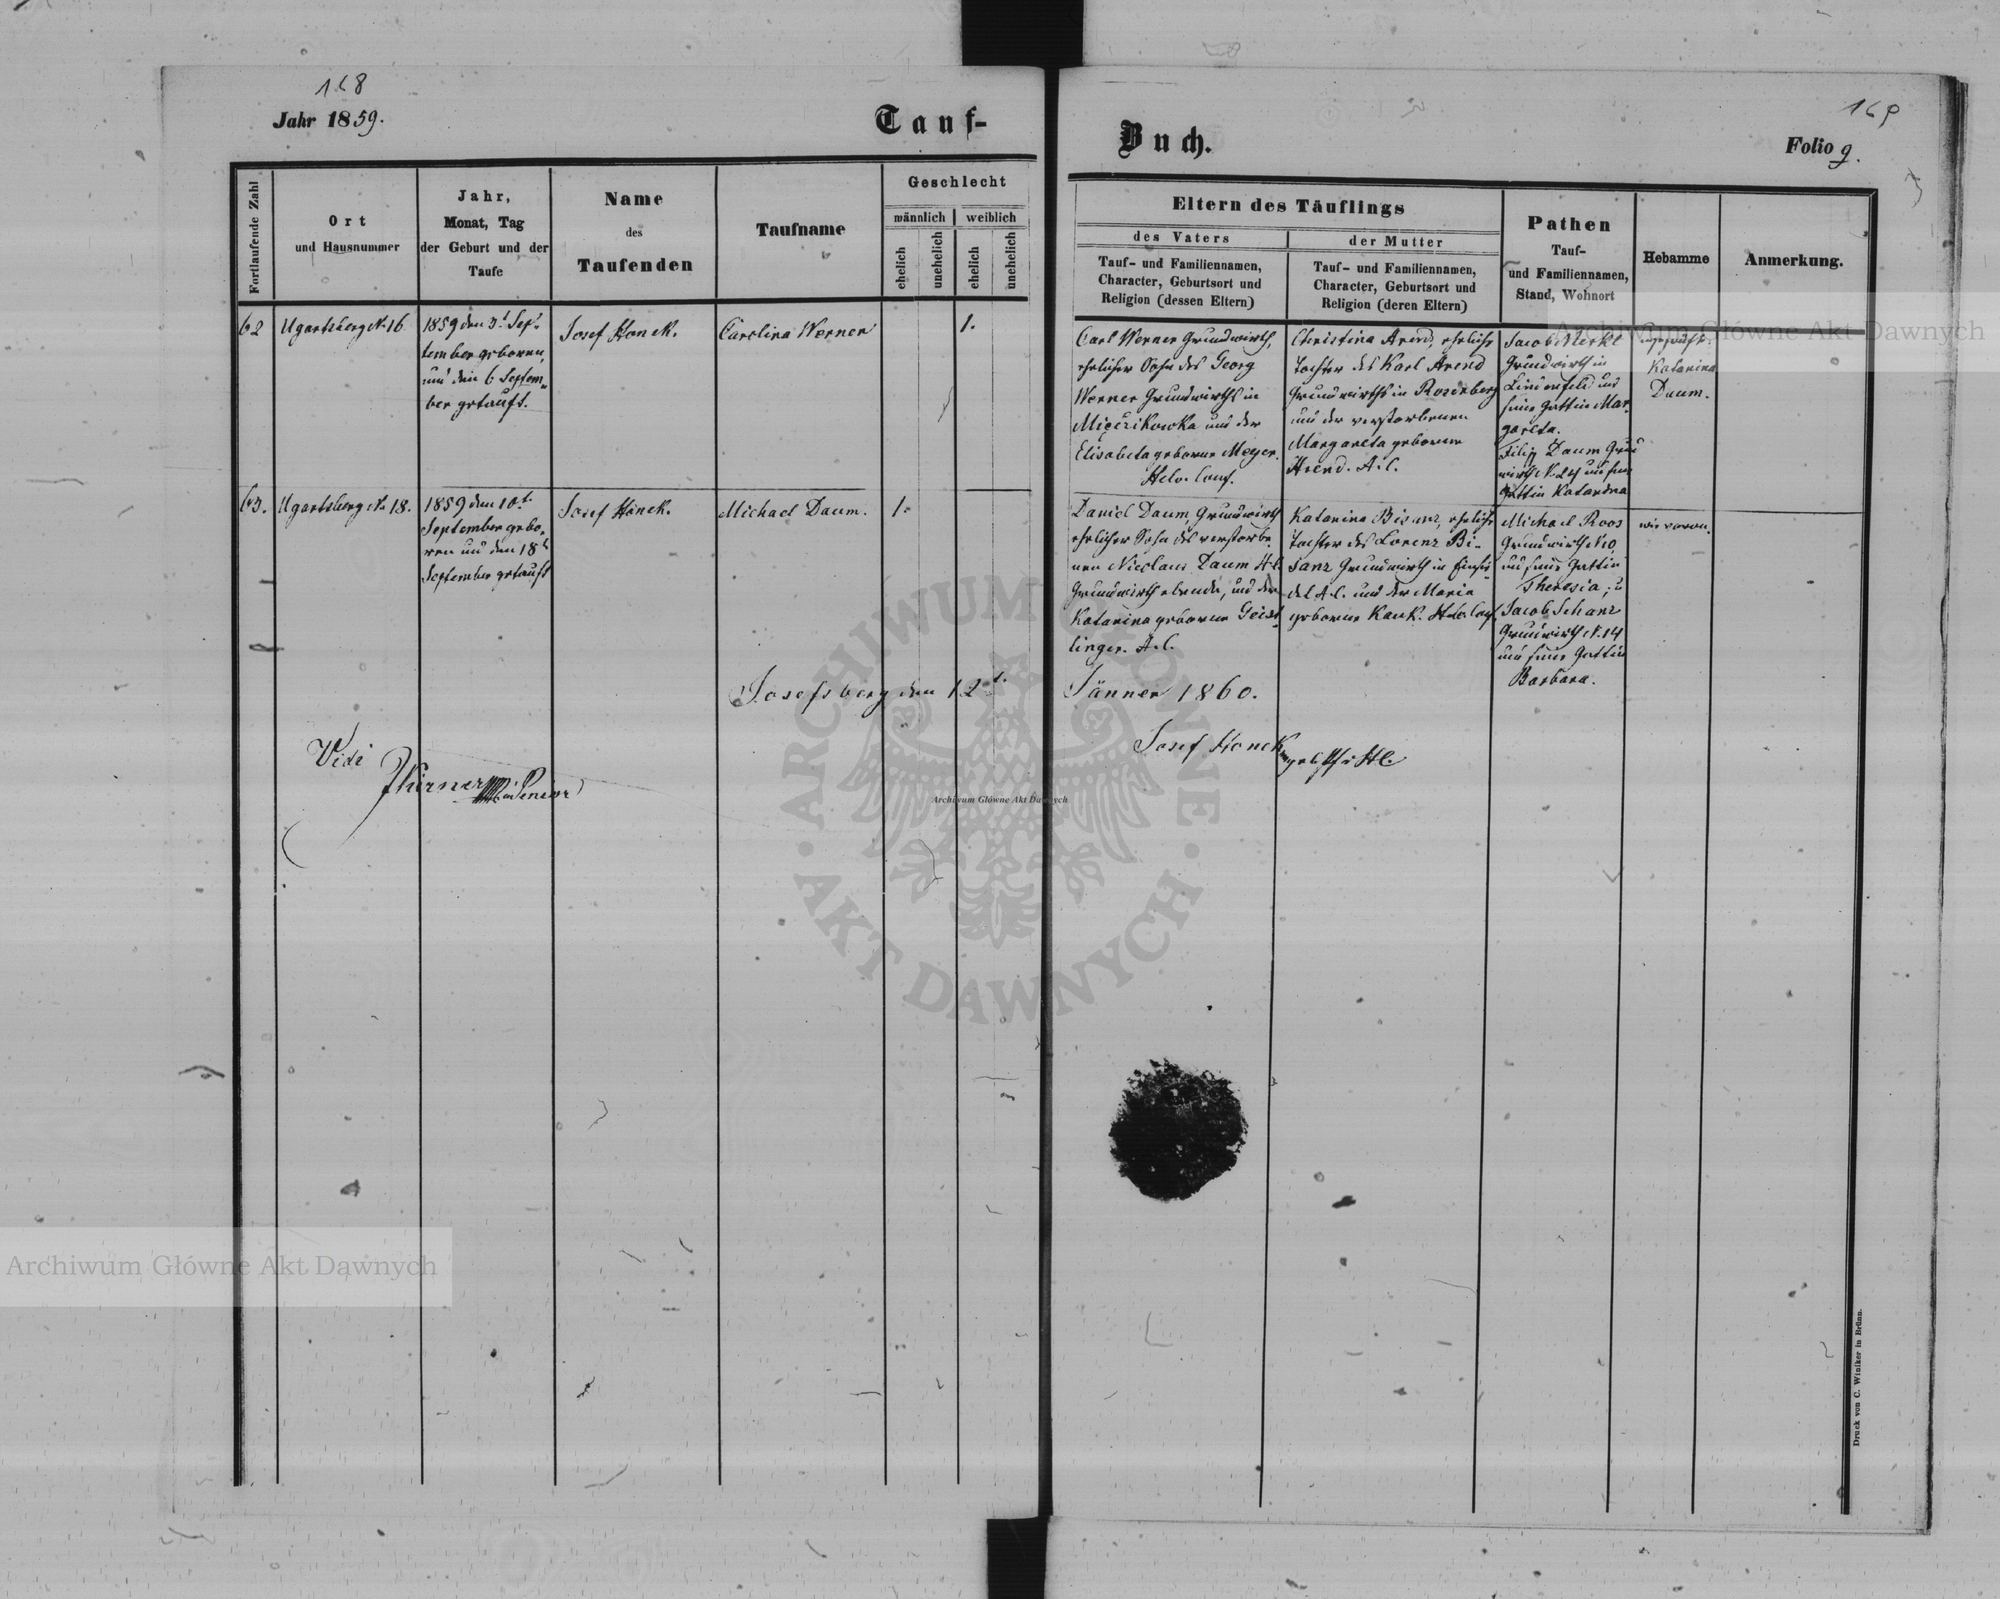 168
Jahr 1859.
Tauf-
Fortlaufende Zahl
Ort
und Hausnummer
Jahr,
Monat, Tag
der Geburt und der
Taufe
Name
des
Taufenden
Taufname
Geschlecht
männlich
weiblich
ehelich
unehelich
ehelich
unehelich
62
Ugartsberg N. 16
1859 den 3t Sep-
tember geboren,
und den 6 Septem-
ber getauft.
Josef Honek.
Carolina Werner
1.
63.
Ugartsberg N. 18.
1859 den 10t.
September gebo-
ren und den 18t
September getauft
Josef Honek.
Michael Daum.
1.
Josefsberg den 12t.
Vidi
Senior
169
Buch.
Folio 9.
Eltern des Täuflings
des Vaters
Tauf- und Familiennamen,
Character, Geburtsort und
Religion (dessen Eltern)
der Mutter
Tauf- und Familiennamen,
Character, Geburtsort und
Religion (deren Eltern)
Pathen
Tauf-
und Familiennamen,
Stand, Wohnort
Hebamme
Anmerkung.
Carl Werner Grundwirth,
ehelicher Sohn des Georg
Werner Grundwirths in
und der
Elisabeta geborne Meyer.
Helv. Conf.
Christina Arend, eheliche
Tochter des Karl Arend
Grundwirths in Rosenberg
und der verstorbenen
Margareta geborne
Arend. A. C.
Jacob Merkl
Grundwirth in
Lindenfeld und
seine Gattin Mar-
gareta.
Filip Daum Grund
wirth N. 24 und seine
Gattin Katarina
ungeprüft.
Katarina
Daum.
Daniel Daum, Grundwirth
ehelicher Sohn des verstorbe-
nen Nicolaus Daum H. C.
Grundwirth ebenda, und der
Katarina geborne Geist-
linger. A. C.
Katarina Bisanz, eheliche
Tochter des Lorenz Bi-
sanz Grundwirth in Einsie-
del A. C. und der Maria
geborne Kauk. Helv. Conf.
Michael Roos
Grundwirth N. 10,
und seine Gattin
Theresia; u
Jacob Schanz
Grundwirth N. 14
und seine Gattin
Barbara.
wie voran.
Jänner 1860.
Josef Honek
Druck von C. Winiker in Brünn.
Archiwum Główne Akt Dawnych
ARCHIWUM GŁÓWNE · AKT DAWNYCH ·
Archiwum Główne Akt Dawnych
Archiwum Główne Akt Dawnych